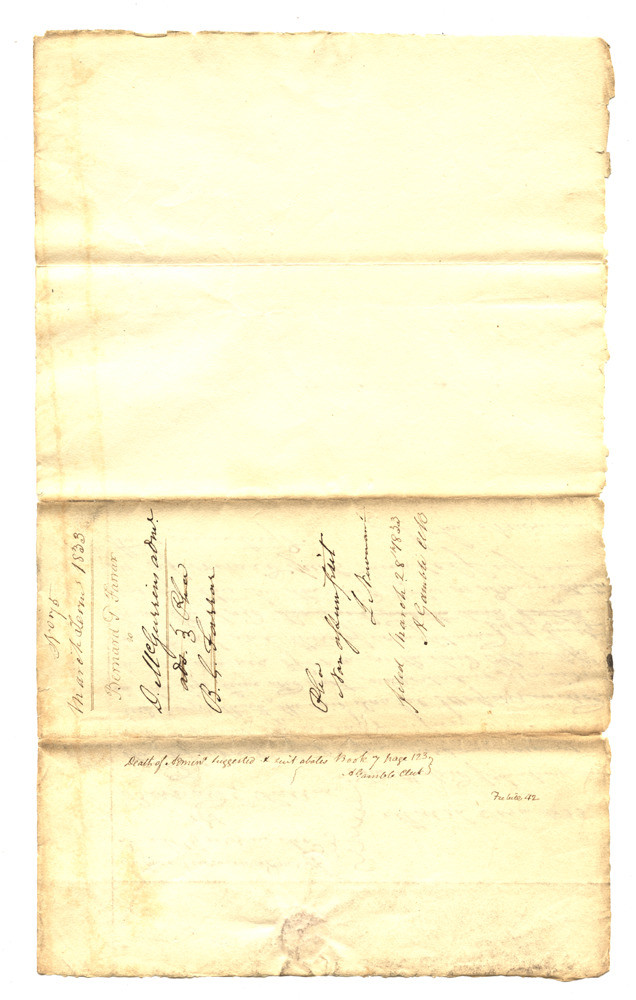 No 75
March Term 1833
Bernard G Farrar
vs
D. McGuirins admr.
ads. } Plea
B. G. Farrar
Plea
Non assumpsit
L E Newman
filed March 28th 1833
A Gamble Clk
Death of Admin suggested & suit abates Book 7 page 123
A Gamble Clerk
42